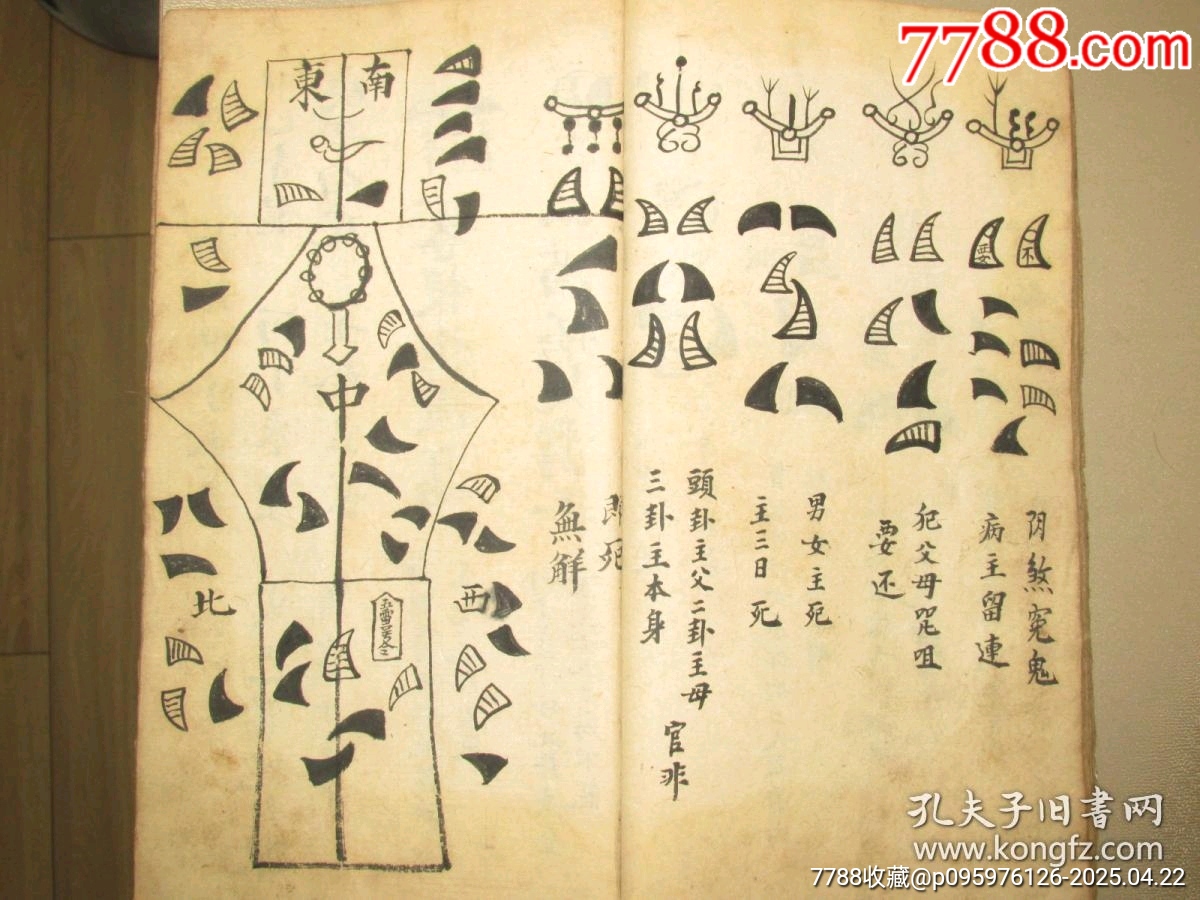 7788.com
不
要
阴煞冤鬼
病主留連
犯父母咒咀
要还
男女主死
主三日死
頭卦主父二卦主母
三卦主本身
官非
即死
無解
南
東
中
西
北
孔夫子旧書网
www.kongfz.com
7788收藏@p095976126-2025.04.22